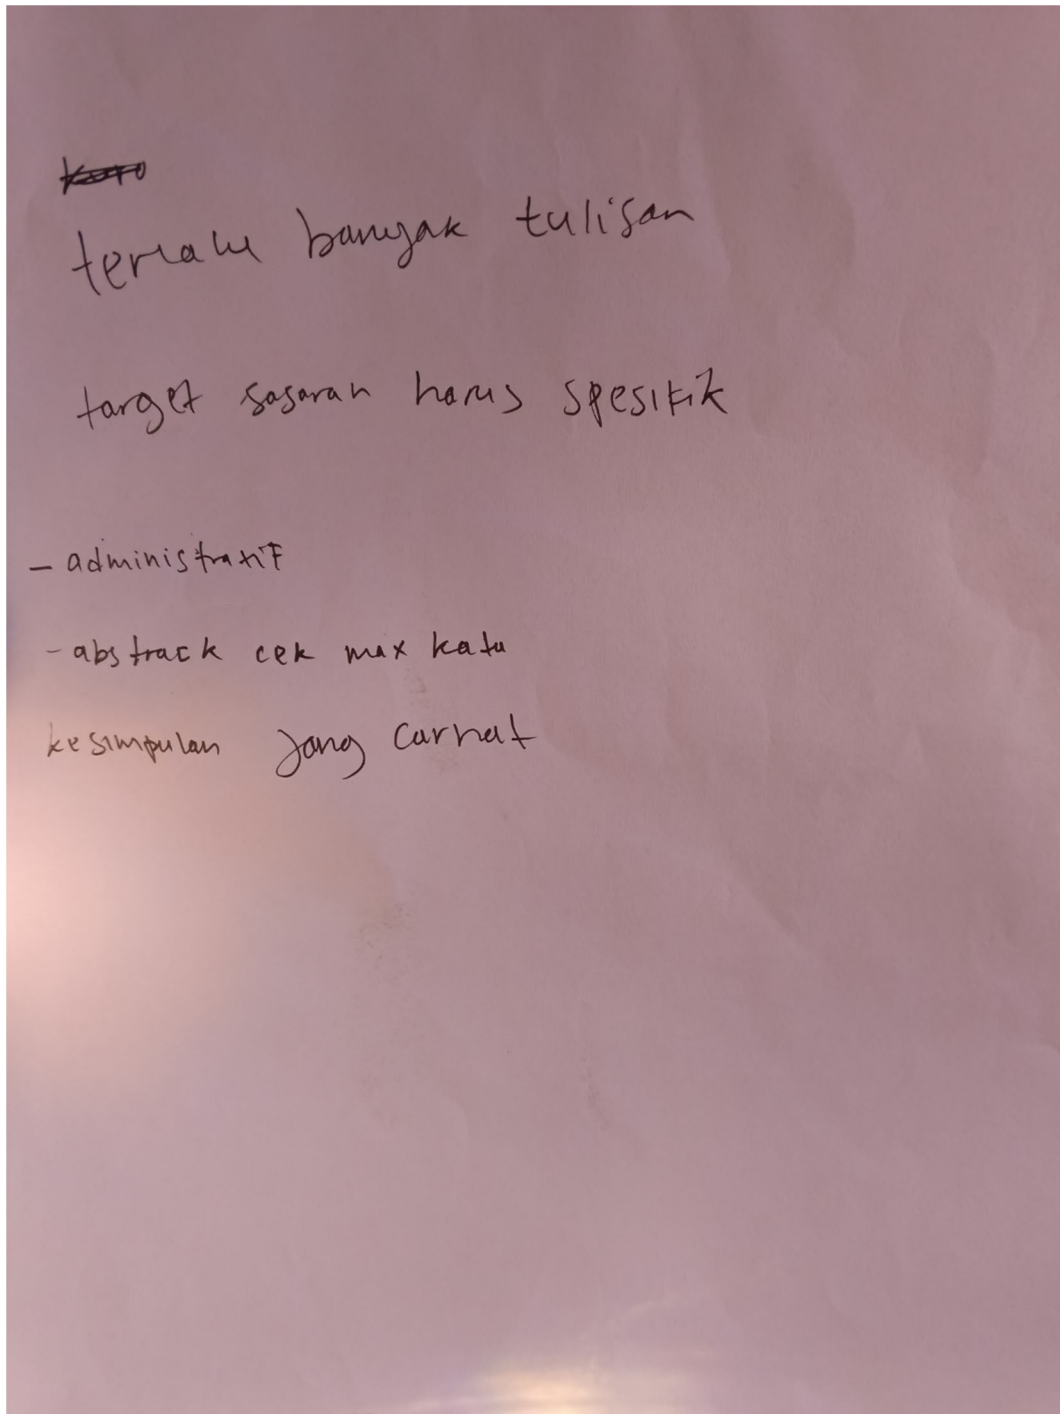 terlalu banyak tulisan
target sasaran harus spesifik
- administratif
- abstrack cek max kata
kesimpulan jang